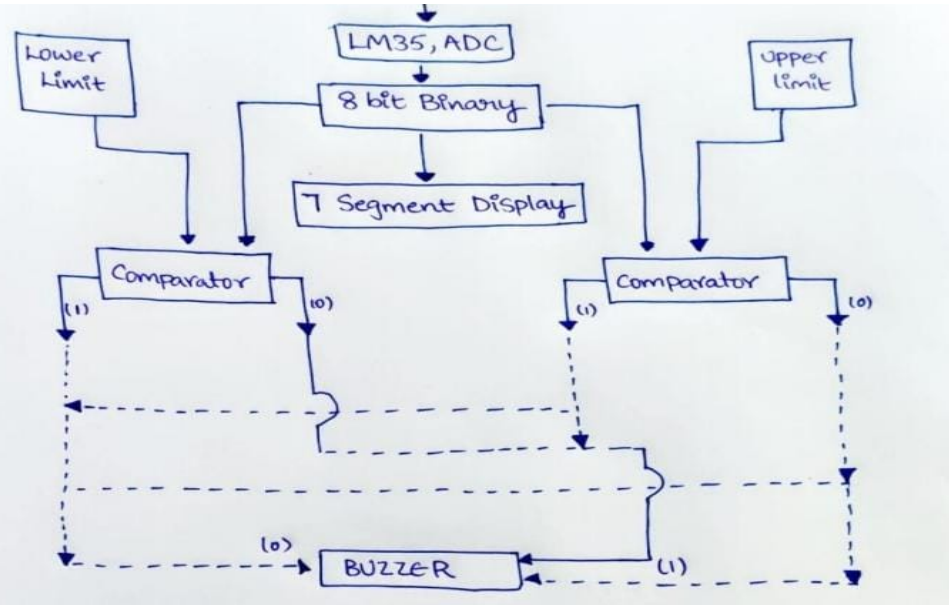 LM35, ADC
Lower
Limit
Upper
limit
8 bit Binary
7 Segment Display
Comparator
Comparator
(1)
(0)
(1)
(0)
(0)
BUZZER
(1)